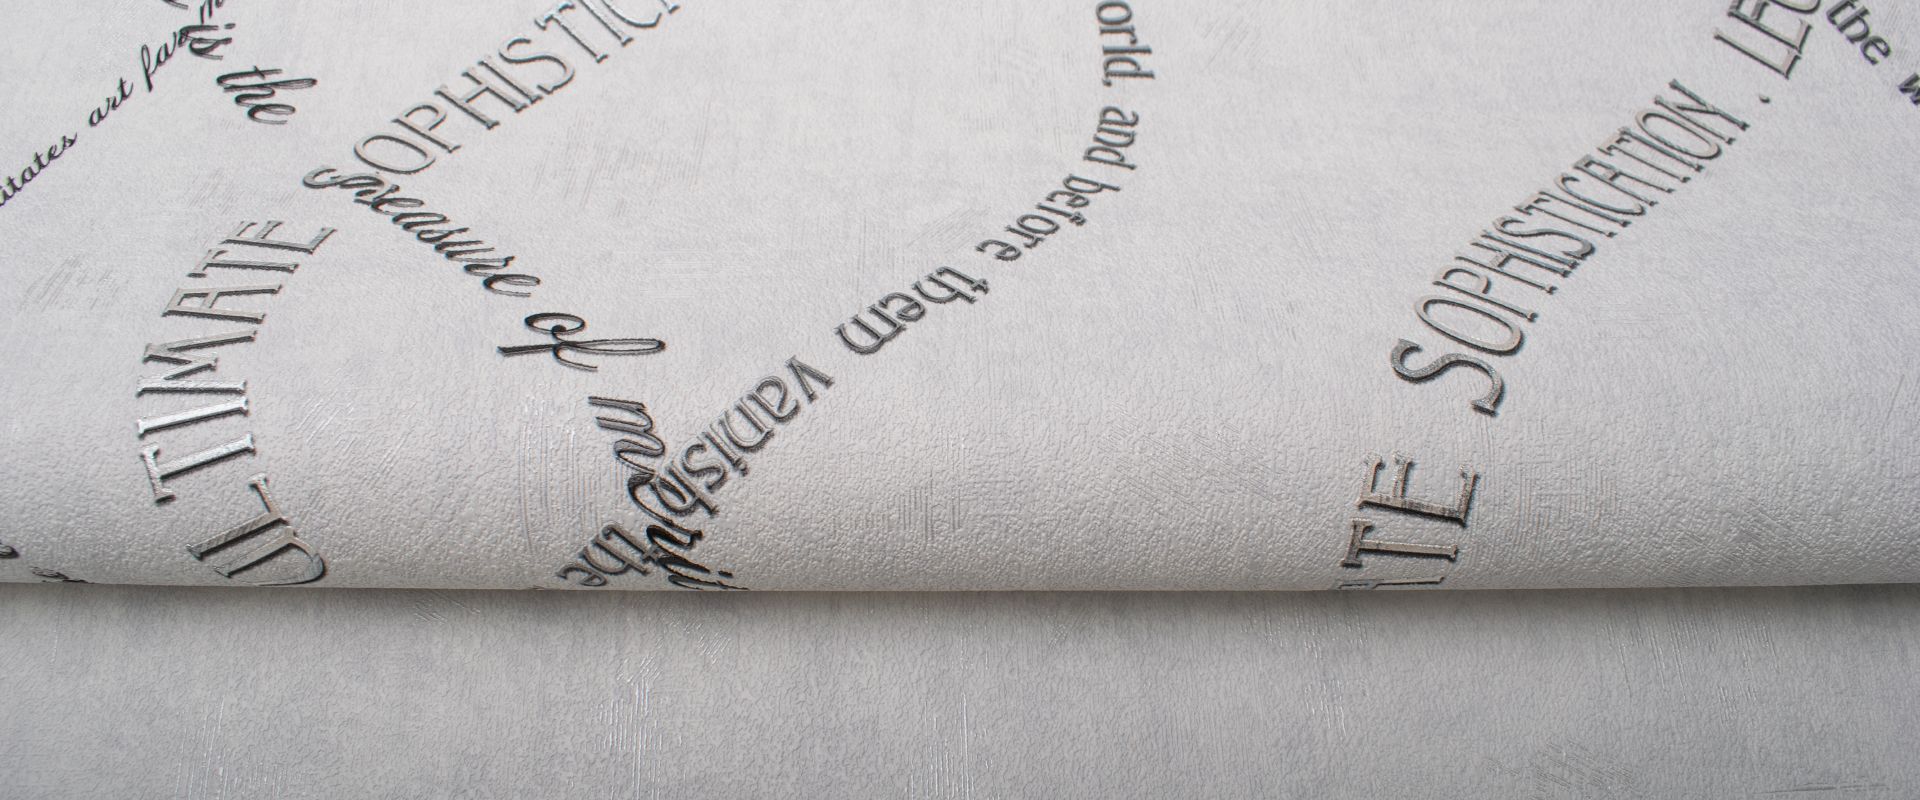 itates art far
is the
measure of
ULTIMATE
SOPHISTIC
orld, and before them vanish
the
ATE SOPHISTICATION . LEO
the w